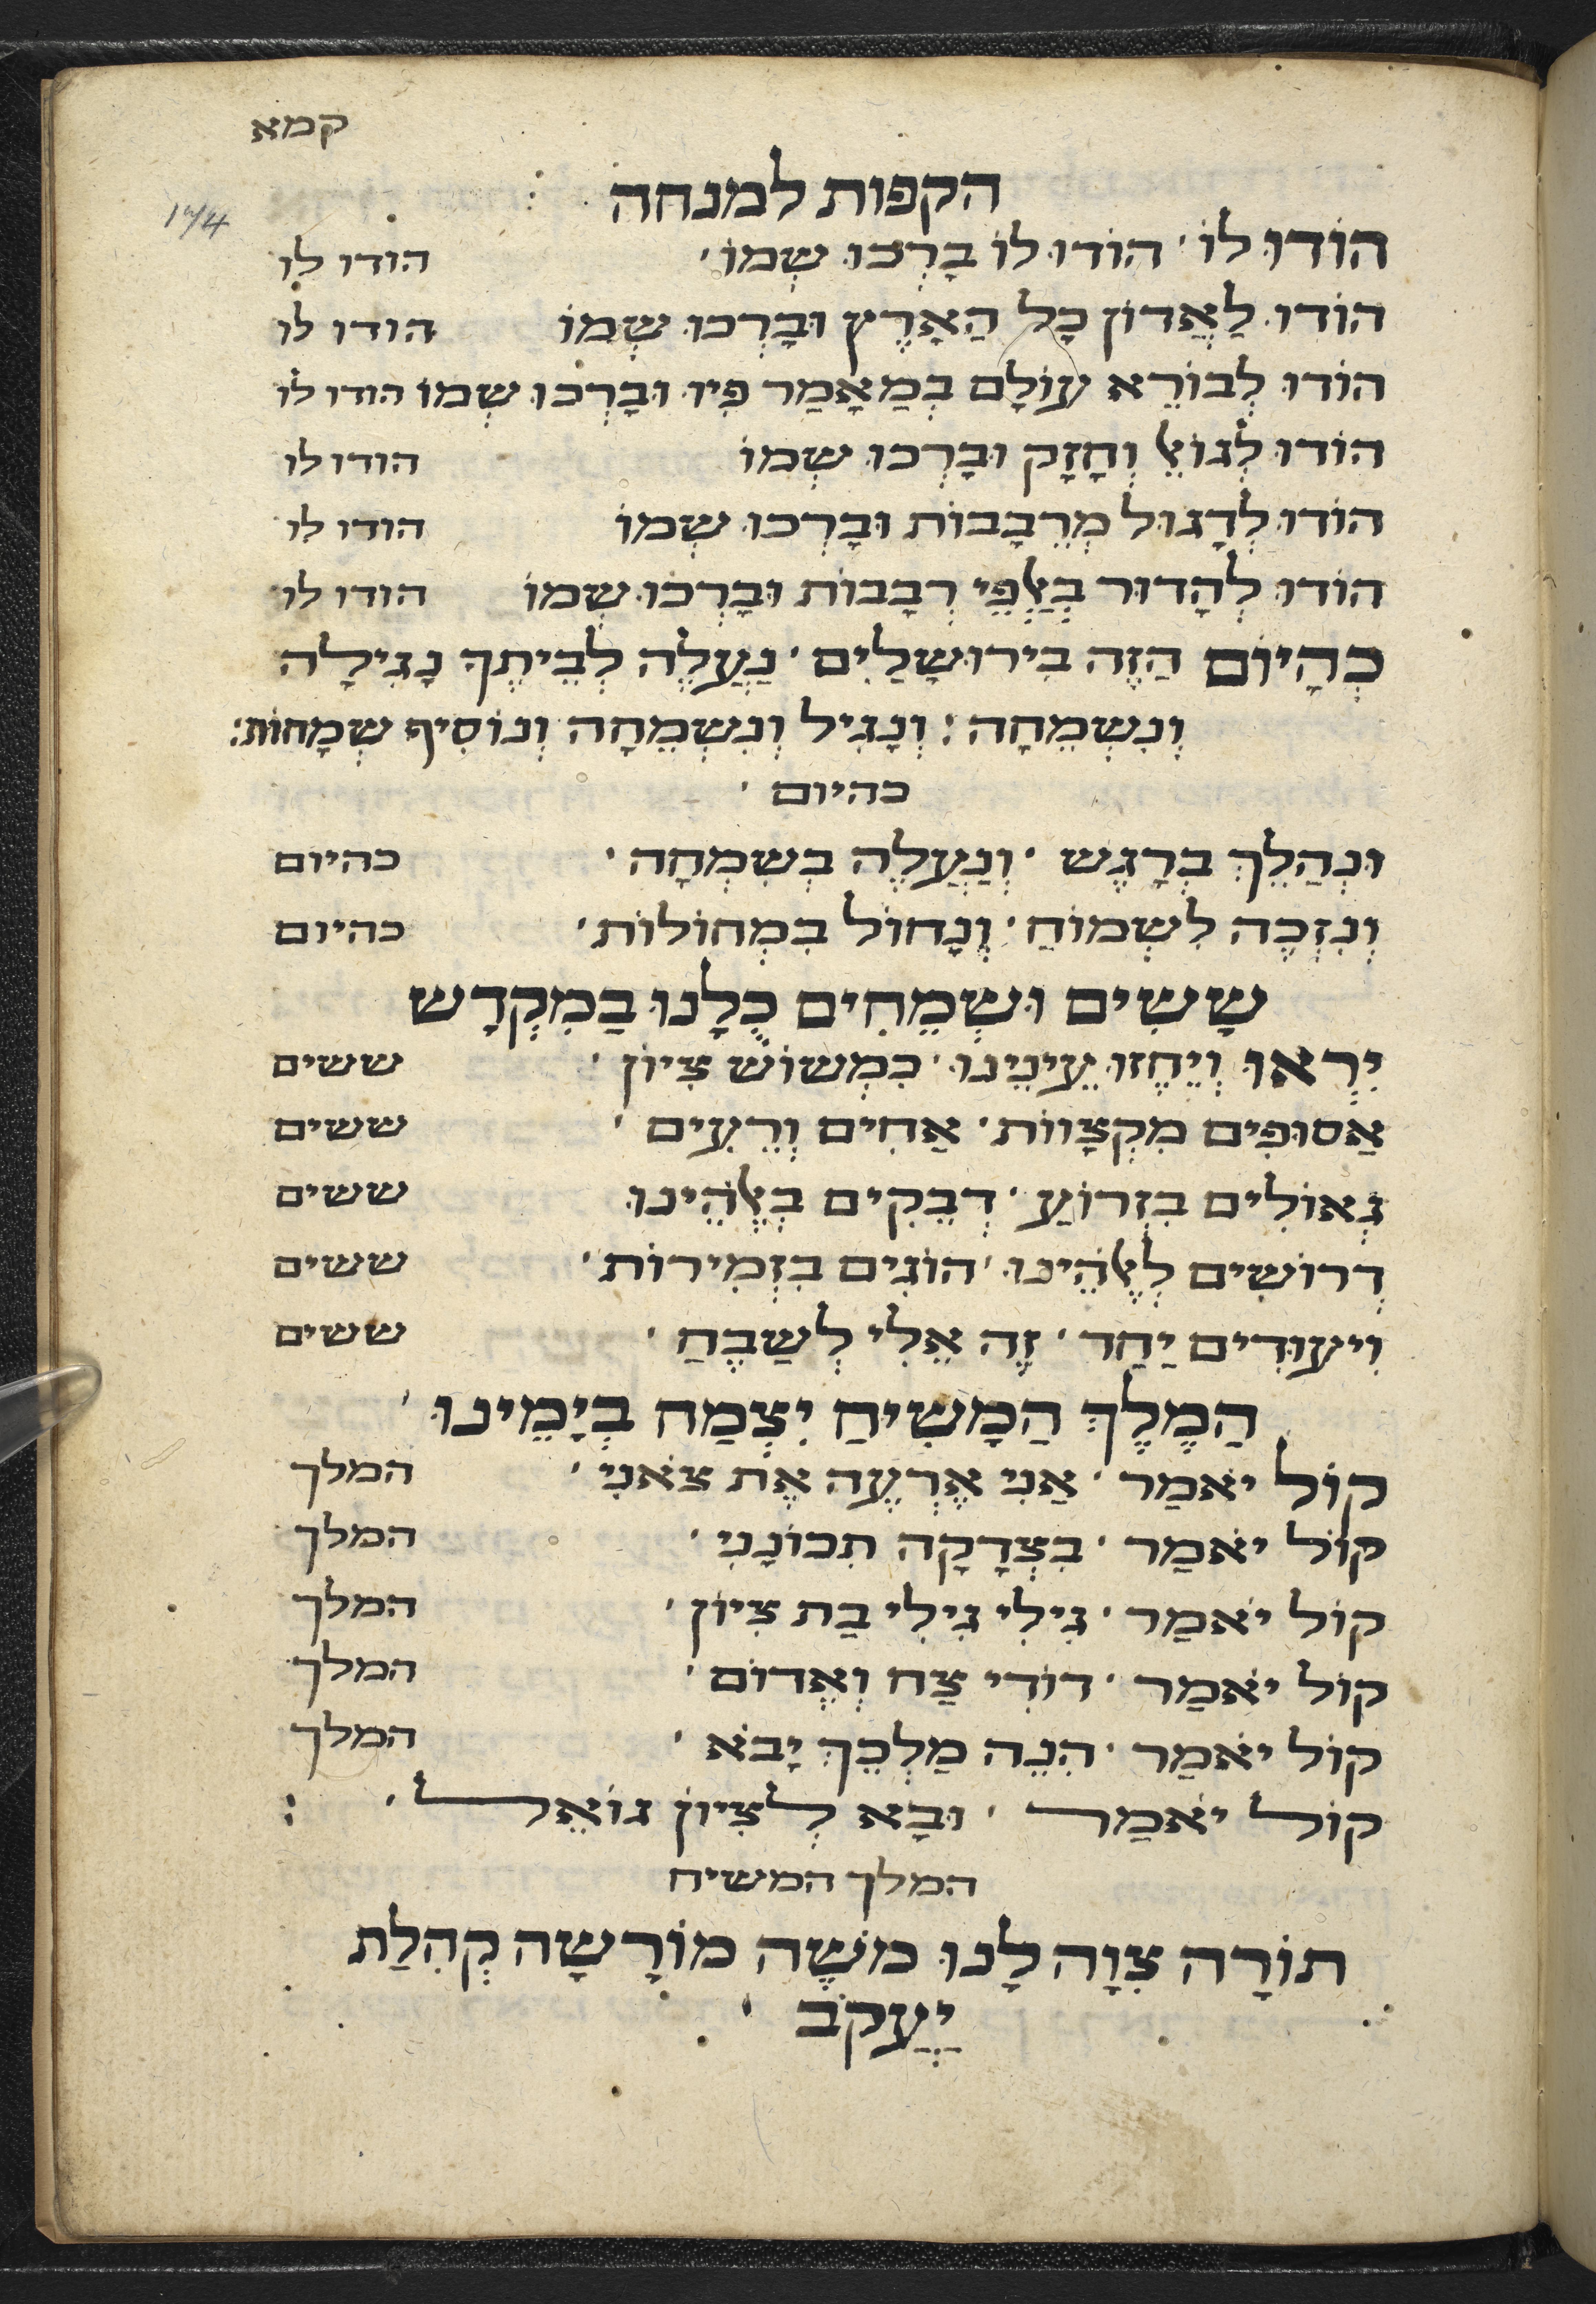 קמא
174
הקפות למנחה :
הוֹדוּ לוֹ ׳ הוֹדוּ לוֹ בָרְכוּ שְׁמוֹ ׳ הודו לו
הוֹדוּ לַאֲדוֹן כָּל הַאָרֶץ וּבָרְכוּ שְׁמוֹ הודו לו
הוֹדוּ לְבוֹרֵא עוֹלָם בְּמַאֲמַר פִּיו וּבָרְכוּ שְׁמוֹ הודו לו
הוֹדוּ לְגוֹאֵל וְחָזָק וּבָרְכוּ שְׁמוֹ הודו לו
הוֹדוּ לְדָגוּל מְרֻבָבוֹת וּבָרְכוּ שְׁמוֹ הודו לו
הוֹדוּ לְהָדוּר בְּאַלְפֵי רְבָבוֹת וּבָרְכוּ שְׁמוֹ הודו לו
כְּהַיוֹם הַזֶה בִירוּשָׁלַיִם ׳ נַעֲלֶה לְבֵיתֶךָ נָגִילָה
וְנִשְׂמֵחָה : וְנָגִיל וְנִשְׂמֵחָה וְנוֹסִיף שְׂמָחוֹת :
כהיום ׳
וּנְהַלֵךְ בְּרָגֶשׁ ׳ וְנַעֲלֶה בְשִׂמְחָה ׳ כהיום
וְנִזְכֶּה לִשְׂמוֹחַ ׳ וְנָחוֹל בִּמְחוֹלוֹת ׳ כהיום
שָׂשִׂים וּשְׂמֵחִים כֻּלָנוּ בַמִקְדָשׁ
יִרְאוּ וְיֶחֱזוּ עֵינֵינוּ ׳ כִּמְשׂוֹשׂ צִיוֹן ׳ ששים
אֲסוּפִים מִקְצָווֹת ׳ אַחִים וְרֵעִים ׳ ששים
גְאוּלִים בִזְרוֹעַ ׳ דְבֵקִים בֶּאֱלֹהֵינוּ ששים
דְרוֹשִׁים לֶאֱלֹהֵינוּ ׳ הוֹגִים בִּזְמִירוֹת ׳ ששים
וִיעוּדִים יַחַד ׳ זֶה אֵלִי לְשַׁבֵּחַ ׳ ששים
הַמֶלֶךְ הַמָשִׁיחַ יִצְמַח בְּיָמֵינוּ ׳
קוֹל יֹאמַר ׳ אֲנִי אֶרְעֶה אֶת צֹאנִי ׳ המלך
קוֹל יֹאמַר ׳ בִּצְדָקָה תִכּוֹנָנִי ׳ המלך
קוֹל יֹאמַר ׳ גִילִי גִילִי בַת צִיוֹן ׳ המלך
קוֹל יֹאמַר ׳ דוֹדִי צַח וְאָדוֹם ׳ המלך
קוֹל יֹאמַר ׳ הִנֵה מַלְכֵּךְ יָבֹא ׳ המלך
קוֹל יֹאמַר ׳ וּבָא לְצִיוֹן גוֹאֵל ׳ :
המלך המשיח
תוֹרָה צִוָה לָנוּ מֹשֶׁה מוֹרָשָׁה קְהִלַת
יַעֲקֹב ׳